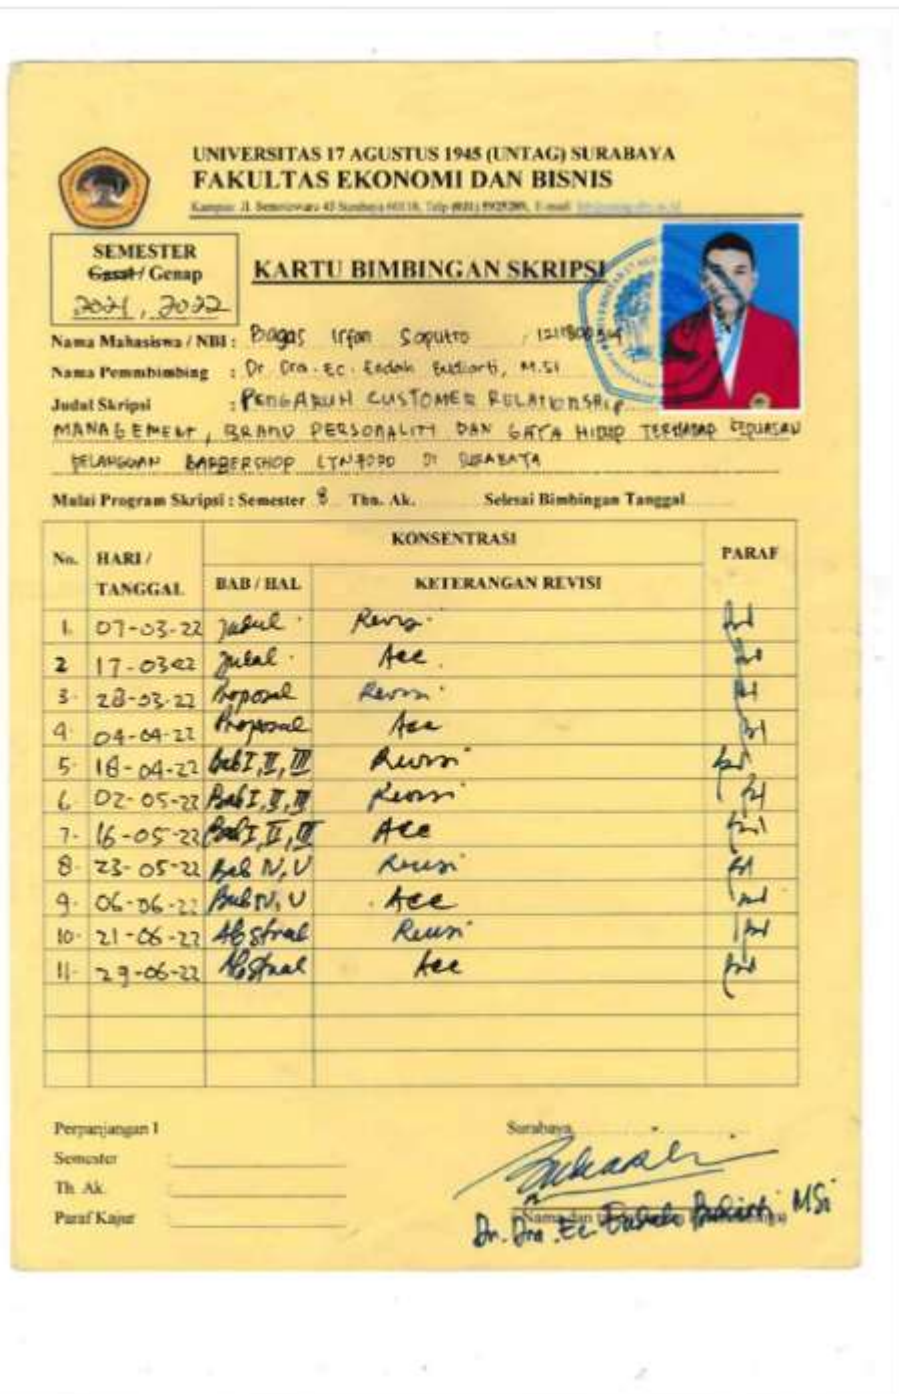 UNIVERSITAS 17 AGUSTUS 1945 (UNTAG) SURABAYA
FAKULTAS EKONOMI DAN BISNIS
Kampus: Jl. Semolowaru 45 Surabaya 60118, Telp (031) 5925289, E-mail:
SEMESTER
Gasal / Genap
2021, 2022
KARTU BIMBINGAN SKRIPSI
Nama Mahasiswa / NBI : Bagas Irfan Saputro /
Nama Pemmbimbing : Dr Dra. Ec. Endah Budiarti, M.Si
Judul Skripsi : PENGARUH CUSTOMER RELATIONSHIP
MANAGEMENT, BRAND PERSONALITY DAN GAYA HIDUP TERHADAP KEPUASAN
PELANGGAN BARBERSHOP DI SURABAYA
Mulai Program Skripsi : Semester 8 Thn. Ak. Selesai Bimbingan Tanggal
No. HARI / TANGGAL KONSENTRASI PARAF
BAB / HAL KETERANGAN REVISI
1. 07-03-22 Judul Revisi
2 17-0322 Judul Acc
3. 28-03-22 Proposal Revisi
4. 04-04-22 Proposal Acc
5. 18-04-22 Bab I, II, III Revisi
6. 02-05-22 Bab I, II, III Revisi
7. 16-05-22 Bab I, II, III Acc
8. 23-05-22 Bab IV, V Revisi
9. 06-06-22 Bab IV, V Acc
10. 21-06-22 Abstrak Revisi
11. 29-06-22 Abstrak Acc
Perpanjangan I
Semester :
Th. Ak. :
Paraf Kajur :
Surabaya,
Nama dan
Dr. Dra. Ec Endah Budiarti, MSi